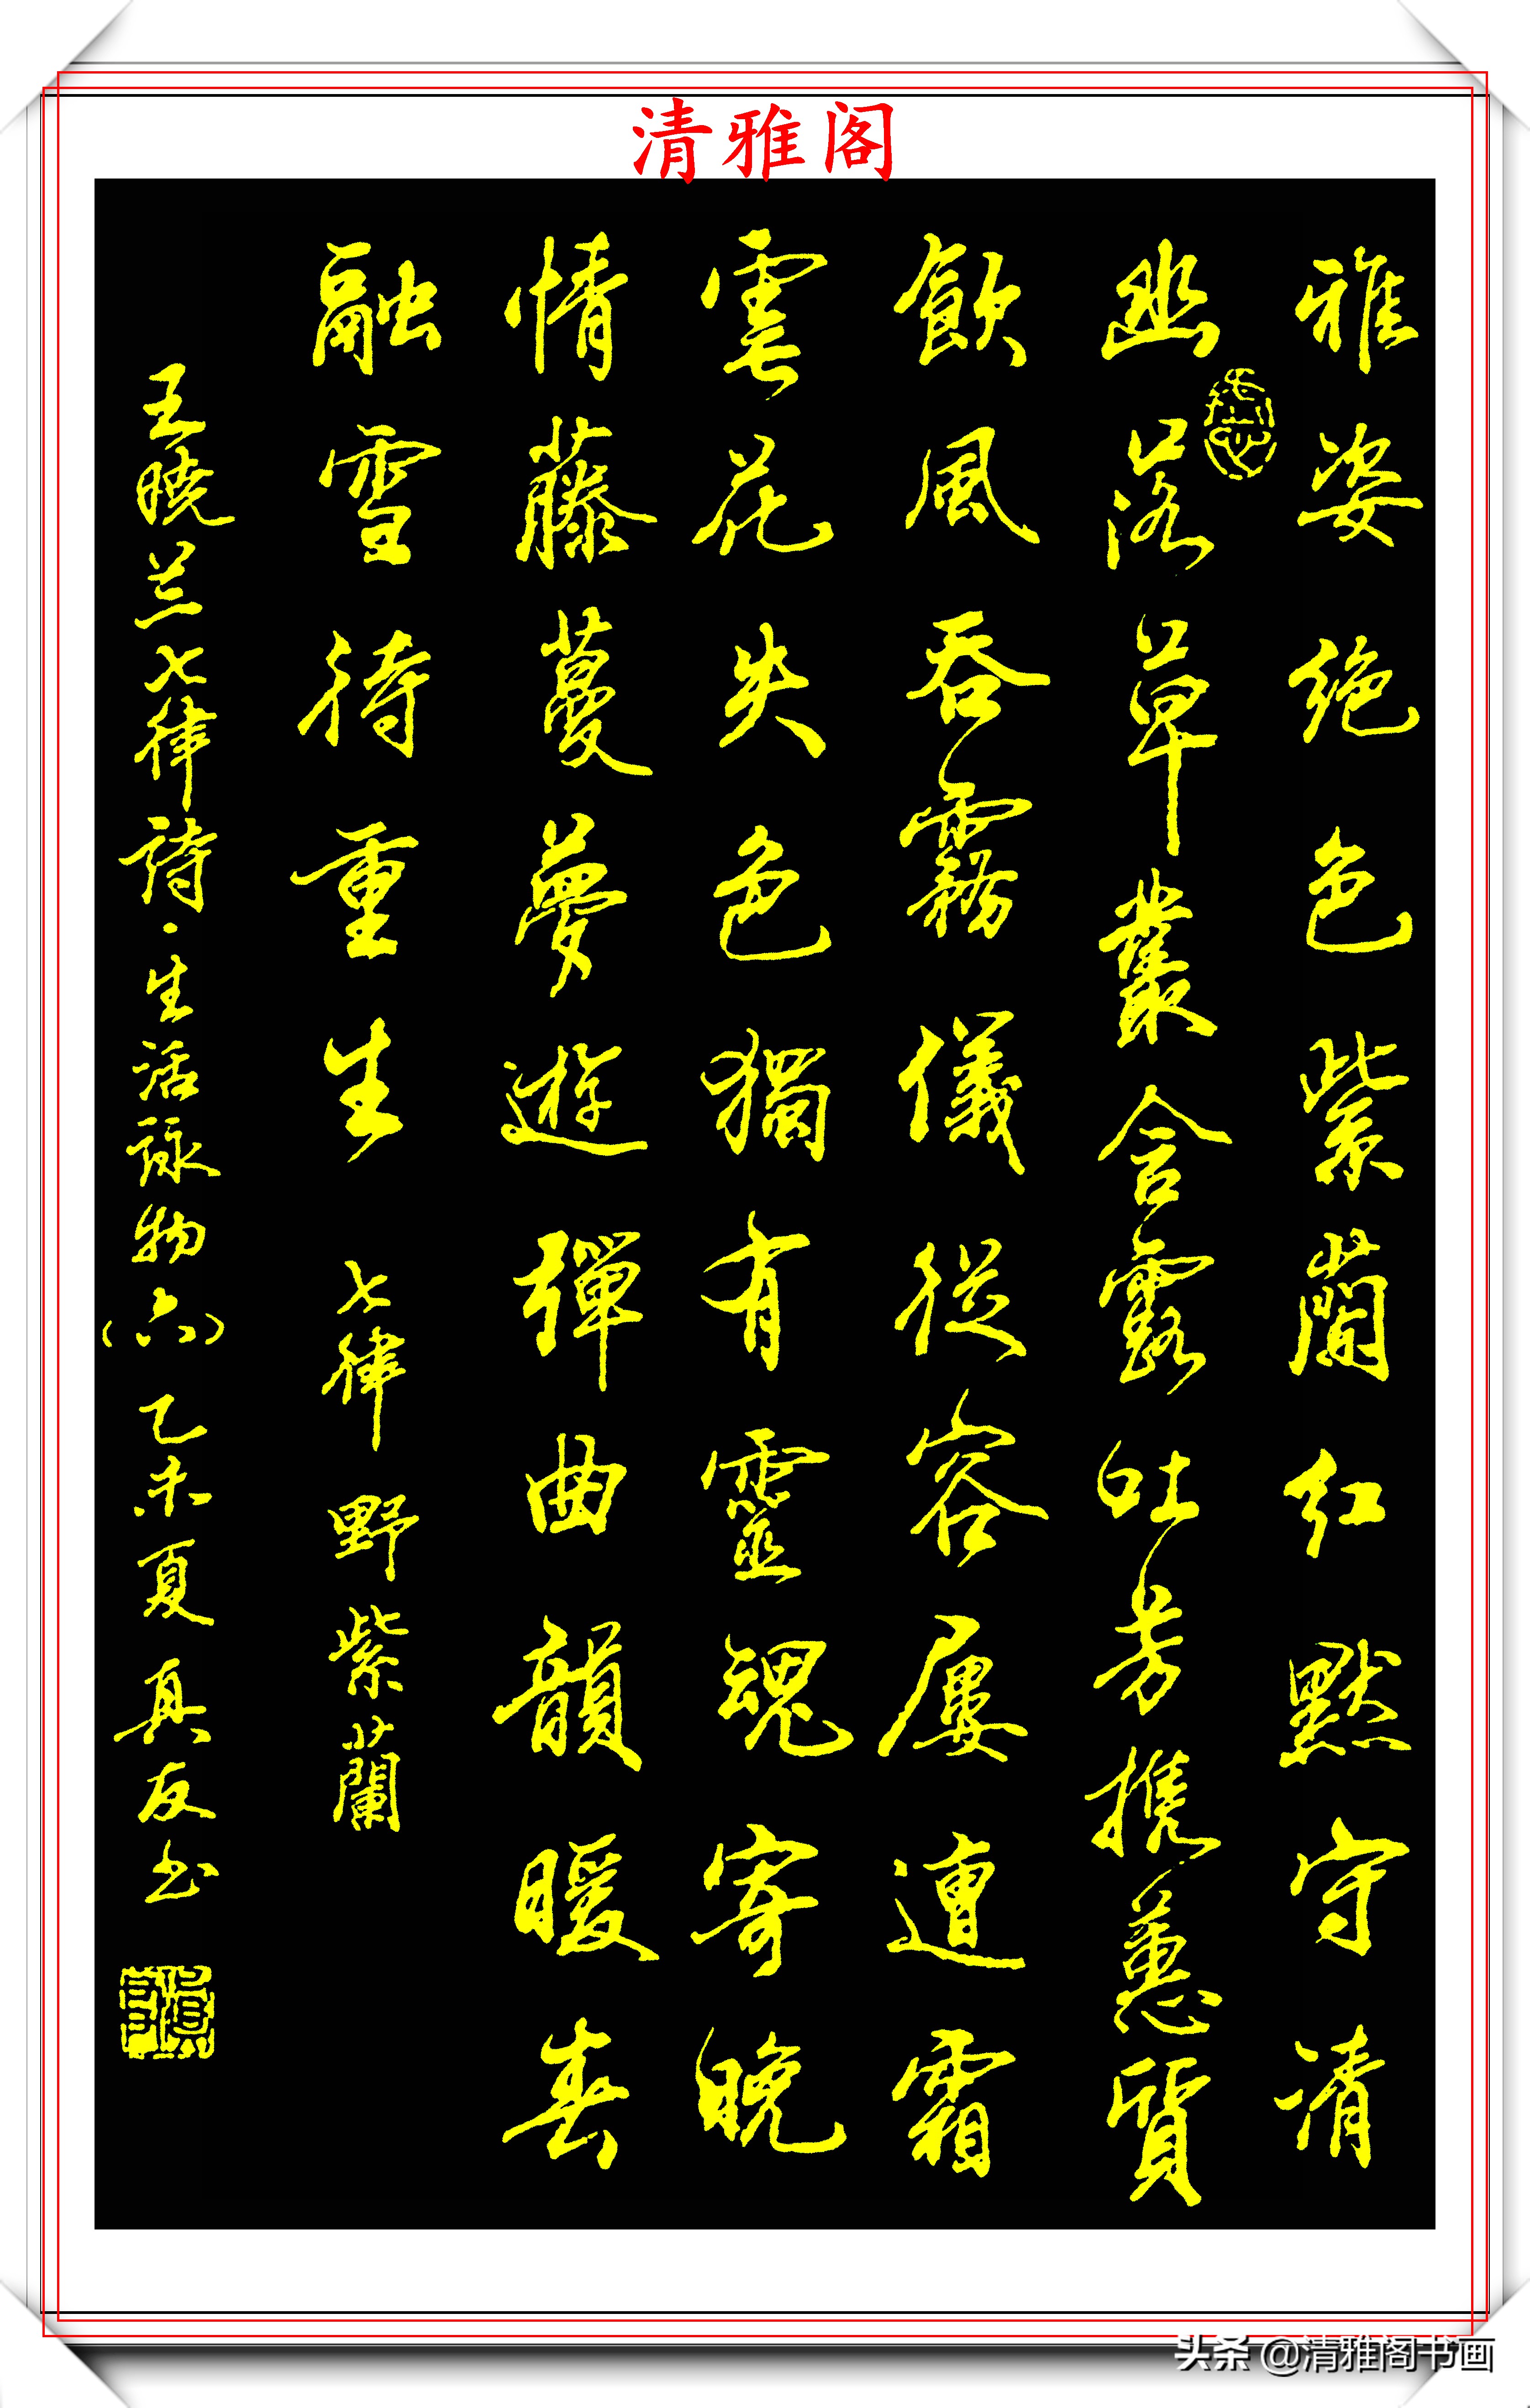 清雅阁
雅姿绝色紫蘭红默守清
幽落草叢含露吐芳携蕙質
飲風吞霧儀從容屢遭霜
雪花失色獨有靈魂寄晚
情藤蔓夢遊彈曲韻暖春
融雪待重生 七律 野紫蘭
王晓兰七律詩·生活詠物(六) 乙未夏 真友书
头条 @清雅阁书画